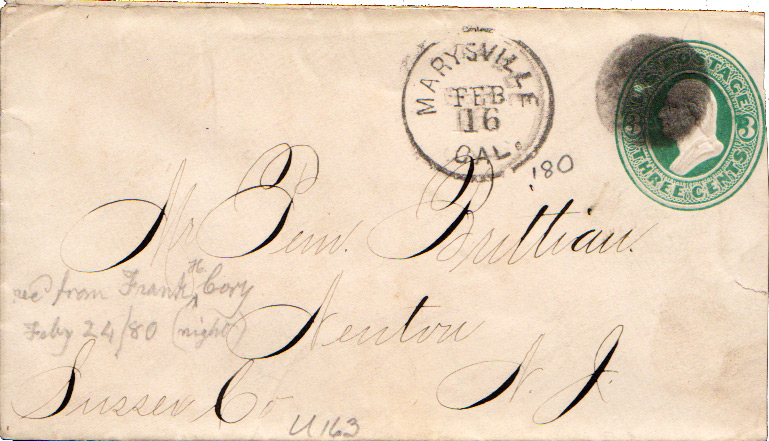 MARYSVILLE
FEB
16
CAL.
'80
U.S. POSTAGE
3 3
THREE CENTS
Mr Pem. Brittian.
rec'd from Frank H. Cory
Feby 24/80 (night)
Newton
Sussex Co N. J.
U163